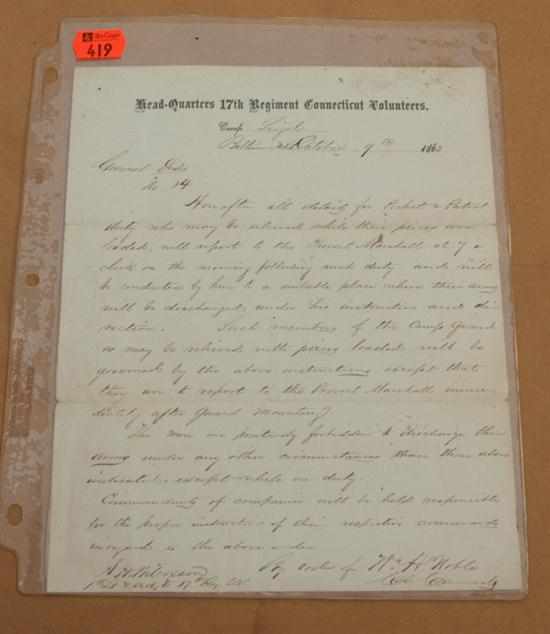 419
Head-Quarters 17th Regiment Connecticut Volunteers.
Camp
October 9th 1862
General Order
No 14
Hereafter all details for Picket & Patrol
duty who may be relieved while their pieces are
loaded, will report to the Provost Marshall at 7 o
clock on the morning following such duty and will
be conducted by him to a suitable place where their arms
will be discharged, under his instruction and di-
rection. Such members of the Camp Guard
as may be relieved with pieces loaded will be
governed by the above instructions except that
they are to report to the Provost Marshall imme-
diately after Guard Mounting
The men are positively forbidden to discharge their
arms under any other circumstances than those above
indicated, except while on duty
Commandants of companies will be held responsible
for the proper instruction of their respective commands
in regard to the above order
By order of Wm H Noble
Col